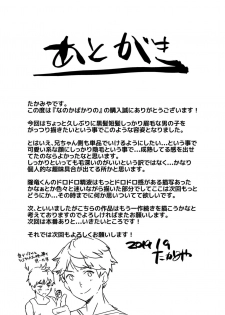 あとがき
たかみやです。
この度は『なのかばかりの』の購入誠にありがとうございます！
今回はちょっと久しぶりに黒髪短髪しっかり眉毛な男の子を
がっつり描きたいという事でこのような容姿となりました。
とはいえ、兄ちゃん側も単品でいけるようにしたい…ということで
可愛い系な顔にしっかり陰毛という事で…成熟してる感を出せて
たのならよかったなと思います。
もっと毛深いのがいいという訳ではなく…かなり
個人的な趣味具合が出てのこれ、という感じです。
かなぁとか色々と迷いながら描いた部分でしてここは次回もっと
どこか…その時までに何か思いついて欲しいです。
次、といいましたがこちらの作品はもう一作続きを描こうかなと
考えておりますのでよろしければまたお願いします。
次回は本番ありと…いきたいところです！
それでは次回もよろしくお願いします！
2019.1.9
たかみや